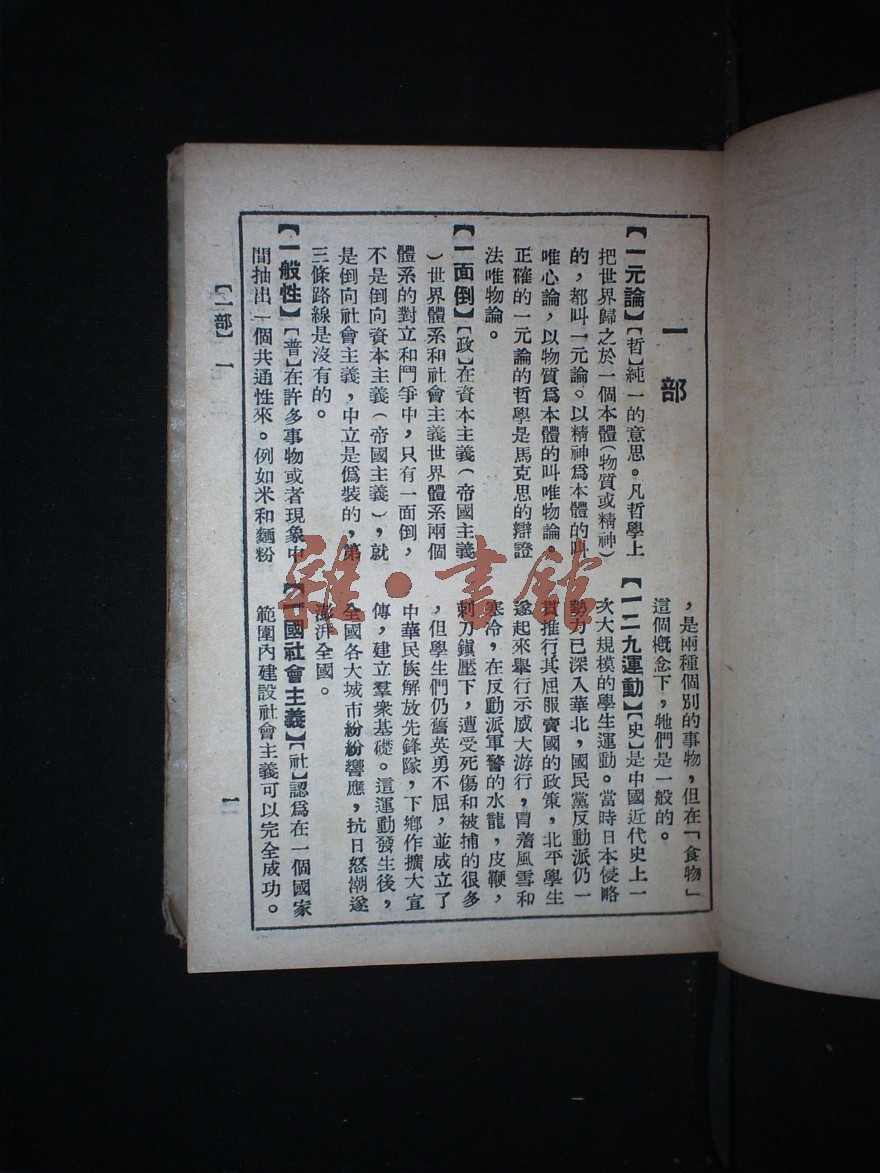 一部
【一元論】【哲】純一的意思。凡哲學上
把世界歸之於一個本體(物質或精神)
的，都叫一元論。以精神爲本體的叫
唯心論，以物質爲本體的叫唯物論。
正確的一元論的哲學是馬克思的辯證
法唯物論。
【一面倒】【政】在資本主義(帝國主義
)世界體系和社會主義世界體系兩個
體系的對立和鬥爭中，只有一面倒，
不是倒向資本主義(帝國主義)，就
是倒向社會主義，中立是僞裝的，第
三條路線是沒有的。
【一般性】【普】在許多事物或者現象中
間抽出一個共通性來。例如米和麵粉
，是兩種個別的事物，但在「食物」
這個概念下，牠們是一般的。
【一二九運動】【史】是中國近代史上一
次大規模的學生運動。當時日本侵略
勢力已深入華北，國民黨反動派仍一
貫推行其屈服賣國的政策，北平學生
遂起來舉行示威大游行，冒着風雪和
寒冷，在反動派軍警的水龍，皮鞭，
刺刀鎭壓下，遭受死傷和被捕的很多
，但學生們仍舊英勇不屈，並成立了
中華民族解放先鋒隊，下鄉作擴大宣
傳，建立羣衆基礎。這運動發生後，
全國各大城市紛紛響應，抗日怒潮遂
澎湃全國。
【一國社會主義】【社】認爲在一個國家
範圍內建設社會主義可以完全成功。
【一部】一
一
雜·書館